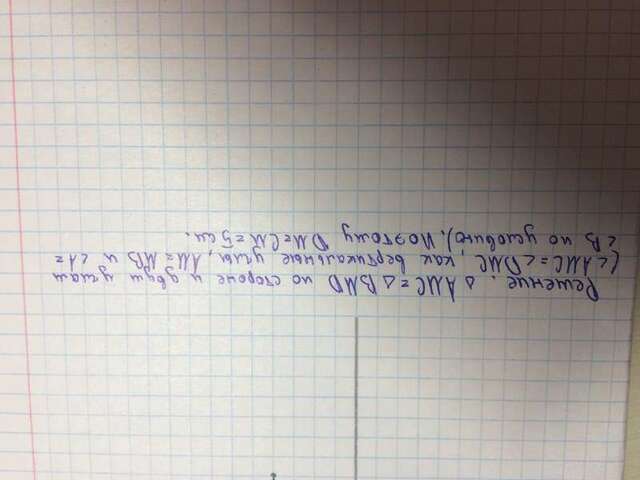 Решение: △ AMC = △ BMD по стороне и двум углам
(∠AMC = ∠DMC, как вертикальные углы, AM = MB и ∠A =
∠B по условию). Поэтому DM = CM = 5 см.